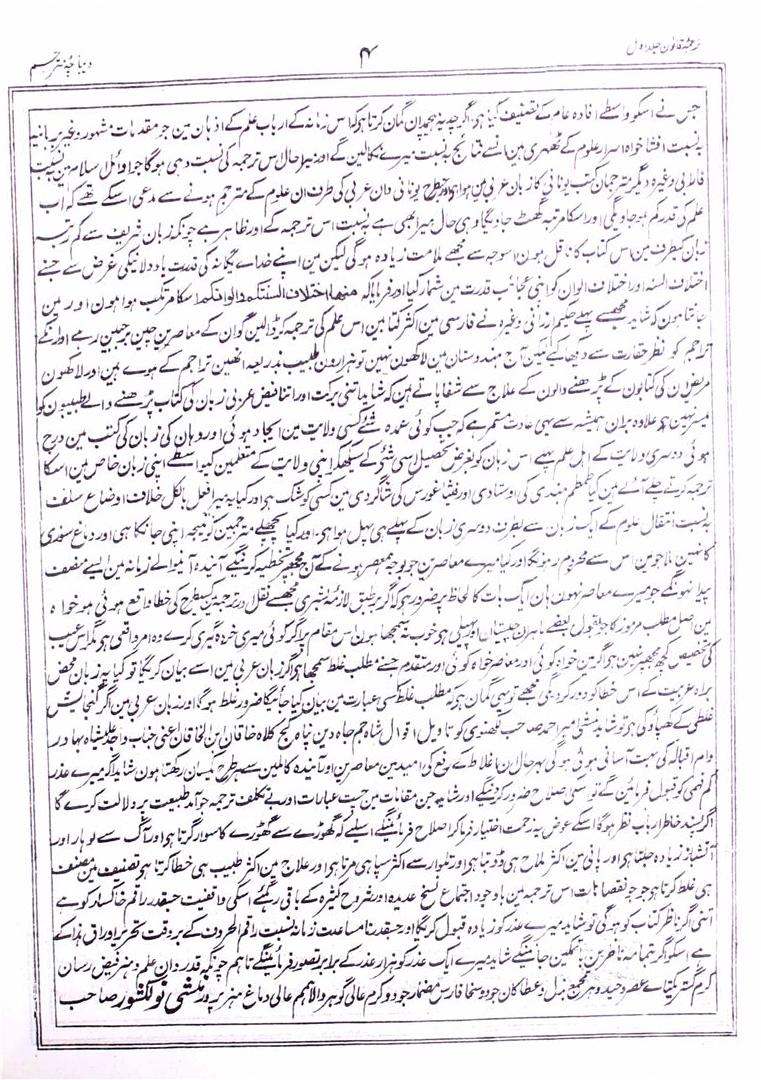 ترجمۂ قانون جلد اول
۴
دیباچۂ مترجم
جس نے اسکو واسطے افادہ عام کے تصنیف کیا ہو۔ اگرچہ یہ ہیچمدان گمان کرتا ہو کہ اس زمانہ کے ارباب علم کے اذہان مین جو مقدمات مشہور وغیر
بہ نسبت افشا خواہ اسرار علوم کے ٹھہری ہین انسے نتائج بہ نسبت میرے نکالین گے اور میرا حال اس ترجمہ کی نسبت وہی ہوگا جو اوائل
وغیرہ دیگر مترجمان کتب یونانی کا زبان عربی مین ہوا یونانی دان عربی کی طرف ان علوم کے مترجم ہونے سے مدعی اسکے تھے کہ اب
علم کی قدر کم ہو جاویگی اور اسکا مرتبہ گھٹ جاویگا وہی حال میرا بھی ہے بہ نسبت اس ترجمہ کے اور ظاہر ہے چونکہ زبان شریف سے کم رتبہ
زبان کیطرف مین اس کتاب کا ناقل ہون اسوجہ سے مجھے ملامت زیادہ ہوگی لیکن مین اپنے خداے یگانہ کی قدرت غرض سے جسنے
اختلاف السنہ اور اختلاف الوان کو اپنی عجائب قدرت مین شمار کیا اور فرمایا کہ منہا اختلاف السنتکم والوانکم اسکا مرتکب ہوا ہون اور مین
جانتا ہون کہ شاید مجھسے پہلے حکیم ارزانی وغیرہ نے فارسی مین اکثر کتابین اس علم کی ترجمہ کر ڈالین گو ان کے معاصرین چین بجبین رہے اور انکے
تراجم کو نظر حقارت سے دیکھا کیے لیکن آج ہندوستان مین لاکھون نہین تو ہزارون طبیب بذریعہ انھین تراجم کے ہوے ہین اور لاکھون
مریض ان کی کتابون کے پڑھنے والون کے علاج سے شفا پاتے ہین کہ شاید اتنی برکت اور اتنا فیض عربی زبان کی کتاب پڑھنے والے طبیبون کو
میسر نہین ہو علاوہ بران ہمیشہ سے یہی عادت مستمر ہے کہ جب کوئی عمدہ شئے کسی ولایت مین ایجاد ہوئی اور وہان کی زبان کی کتب مین درج
ہوئی دوسری ولایت کے اہل علم پہلے اس زبان کو بغرض تحصیل اسی شئی کے سیکھکر اپنی ولایت کے متعلمین کیواسطے اپنی زبان خاص مین اسکا
ترجمہ کرتے چلے آئے ہین کیا ہندی کی اوستادی اور فیثاغورس کی شاگردی مین کسی کو شک ہو اور کیا یہ میرا فعل بالکل خلاف اوضاع سلف
بہ نسبت انتقال علوم کے ایک زبان سے بطرف دوسری زبان کے پہلے ہی پہل ہوا ہی۔ اور کیا پچھلے مترجمین کو نتیجہ اپنی جانکاہی اور دماغ سوزی
کا نہین ملا جو مین اس سے محروم رہونگا اور کیا میرے معاصرین جو بوجہ ہمعصر ہونے کے آج مجھپر تخطیہ کرینگے آیندہ آنیوالے زمانہ مین ایسے منصف
پیدا نہونگے جو میرے معاصر نہون ہان ایک بات کا لحاظ پر ضرور ہو کہ اگر بر طبق لازمۂ بشری مجھسے نقل در ترجمہ مین کسی طرح کی خطا واقع ہوئی ہو خواہ
مین اصل مطلب مرموز کا جو بقول بعضے چیستان اور پہیلی ہو خوب نہ سمجھا ہون اس مقام پر اگر کوئی میری خردہ گیری کرے وہ امر واقعی ہو مگر اس عیب
کی تخصیص کچھ مجھپر نہین ہو اگر مین خواہ کوئی اور معاصر خواہ کوئی اور متقدم جسنے مطلب غلط سمجھا ہو اگر زبان عربی مین اسے بیان کریگا تو کیا یہ زبان محض
براہ عربیت کے اس خطا کو دور کر دیگی مجھے تو یہی گمان ہو کہ مطلب غلط کسی عبارت مین بیان کیا جائیگا ضرور غلط ہوگا اور زبان عربی مین اگر گنجایش
غلطی کے چھپاؤ کی ہو تو شاید منشی میر احمد صاحب لکھنوی کو تاویل اقوال شاہ جم جاہ دین پناہ کج کلاہ خاقان ابن الخاقان اعنی جناب واجد علیشاہ بہادر
دام اقبالہ کی بہت آسانی ہوئی ہوگی بہر حال ان اغلاط کے رفع کی امید مین معاصرین اور آیندہ کاملین سے بہر طرح یکسان رکھتا ہون شاید اگر میرے عذر
کم فہمی کو قبول فرمائین گے تو سعی اصلاح ضرور کرینگے اور شاید جن مقامات مین حسب عبارات اور بے تکلف ترجمہ جو آمد طبیعت پر دلالت کرے گا
اگر پسند خاطر ارباب نظر ہوگا اسکے عوض یہ زحمت اختیار فرما کر اصلاح فرمائینگے اسلیے کہ گھوڑے سے گھوڑے کا سوار گرتا ہو اور آگ سے لوہار اور
آتشباز زیادہ جلتا ہو اور پانی مین اکثر ملاح ہی ڈوبتا ہو اور تلوار سے اکثر سپاہی مرتا ہو اور علاج مین اکثر طبیب ہی خطا کرتا ہو تصنیف مین مصنف
ہی غلط کرتا ہو جو جو نقصانات اس ترجمہ مین باوجود اجتماع نسخ عدیدہ اور شروح کثیرہ کے باقی رہگئے اسکی واقفیت جسقدر راقم خاکسار کو ہے
اتنی اگر ناظر کتاب کو ہوگی تو شاید میرے عذر کو زیادہ قبول کریگا اور جسقدر نا مساعدت زمانہ نسبت راقم الحروف کے بروقت تحریر اوراق ہذا کے
ہے اسکو اگر بتمامہ ناظرین باتمکین جانینگے شاید میرے ایک عذر کو ہزار عذر کے برابر تصور فرمائینگے تاہم چونکہ قدردان علم و ہنر فیض رسان
کرم گستر یکتاے عصر وحید دہر مجمع بذل و عطا کان جود و سخا فارس مضمار جود و کرم عالی گوہر والا ہمم عالی دماغ ہنر پرور منشی نولکشور صاحب